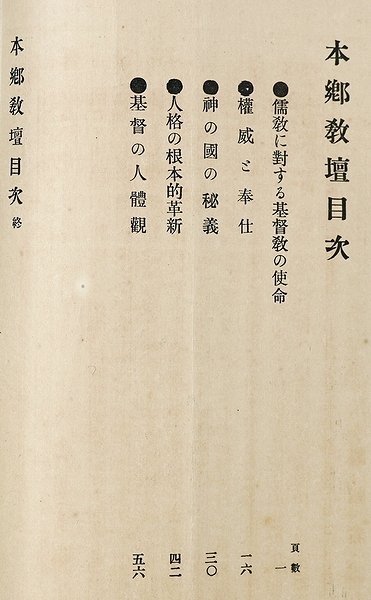 本鄕敎壇目次
頁數
●儒敎に對する基督敎の使命 一
●權威と奉仕 一六
●神の國の秘義 三〇
●人格の根本的革新 四二
●基督の人體觀 五六
本鄕敎壇目次 終